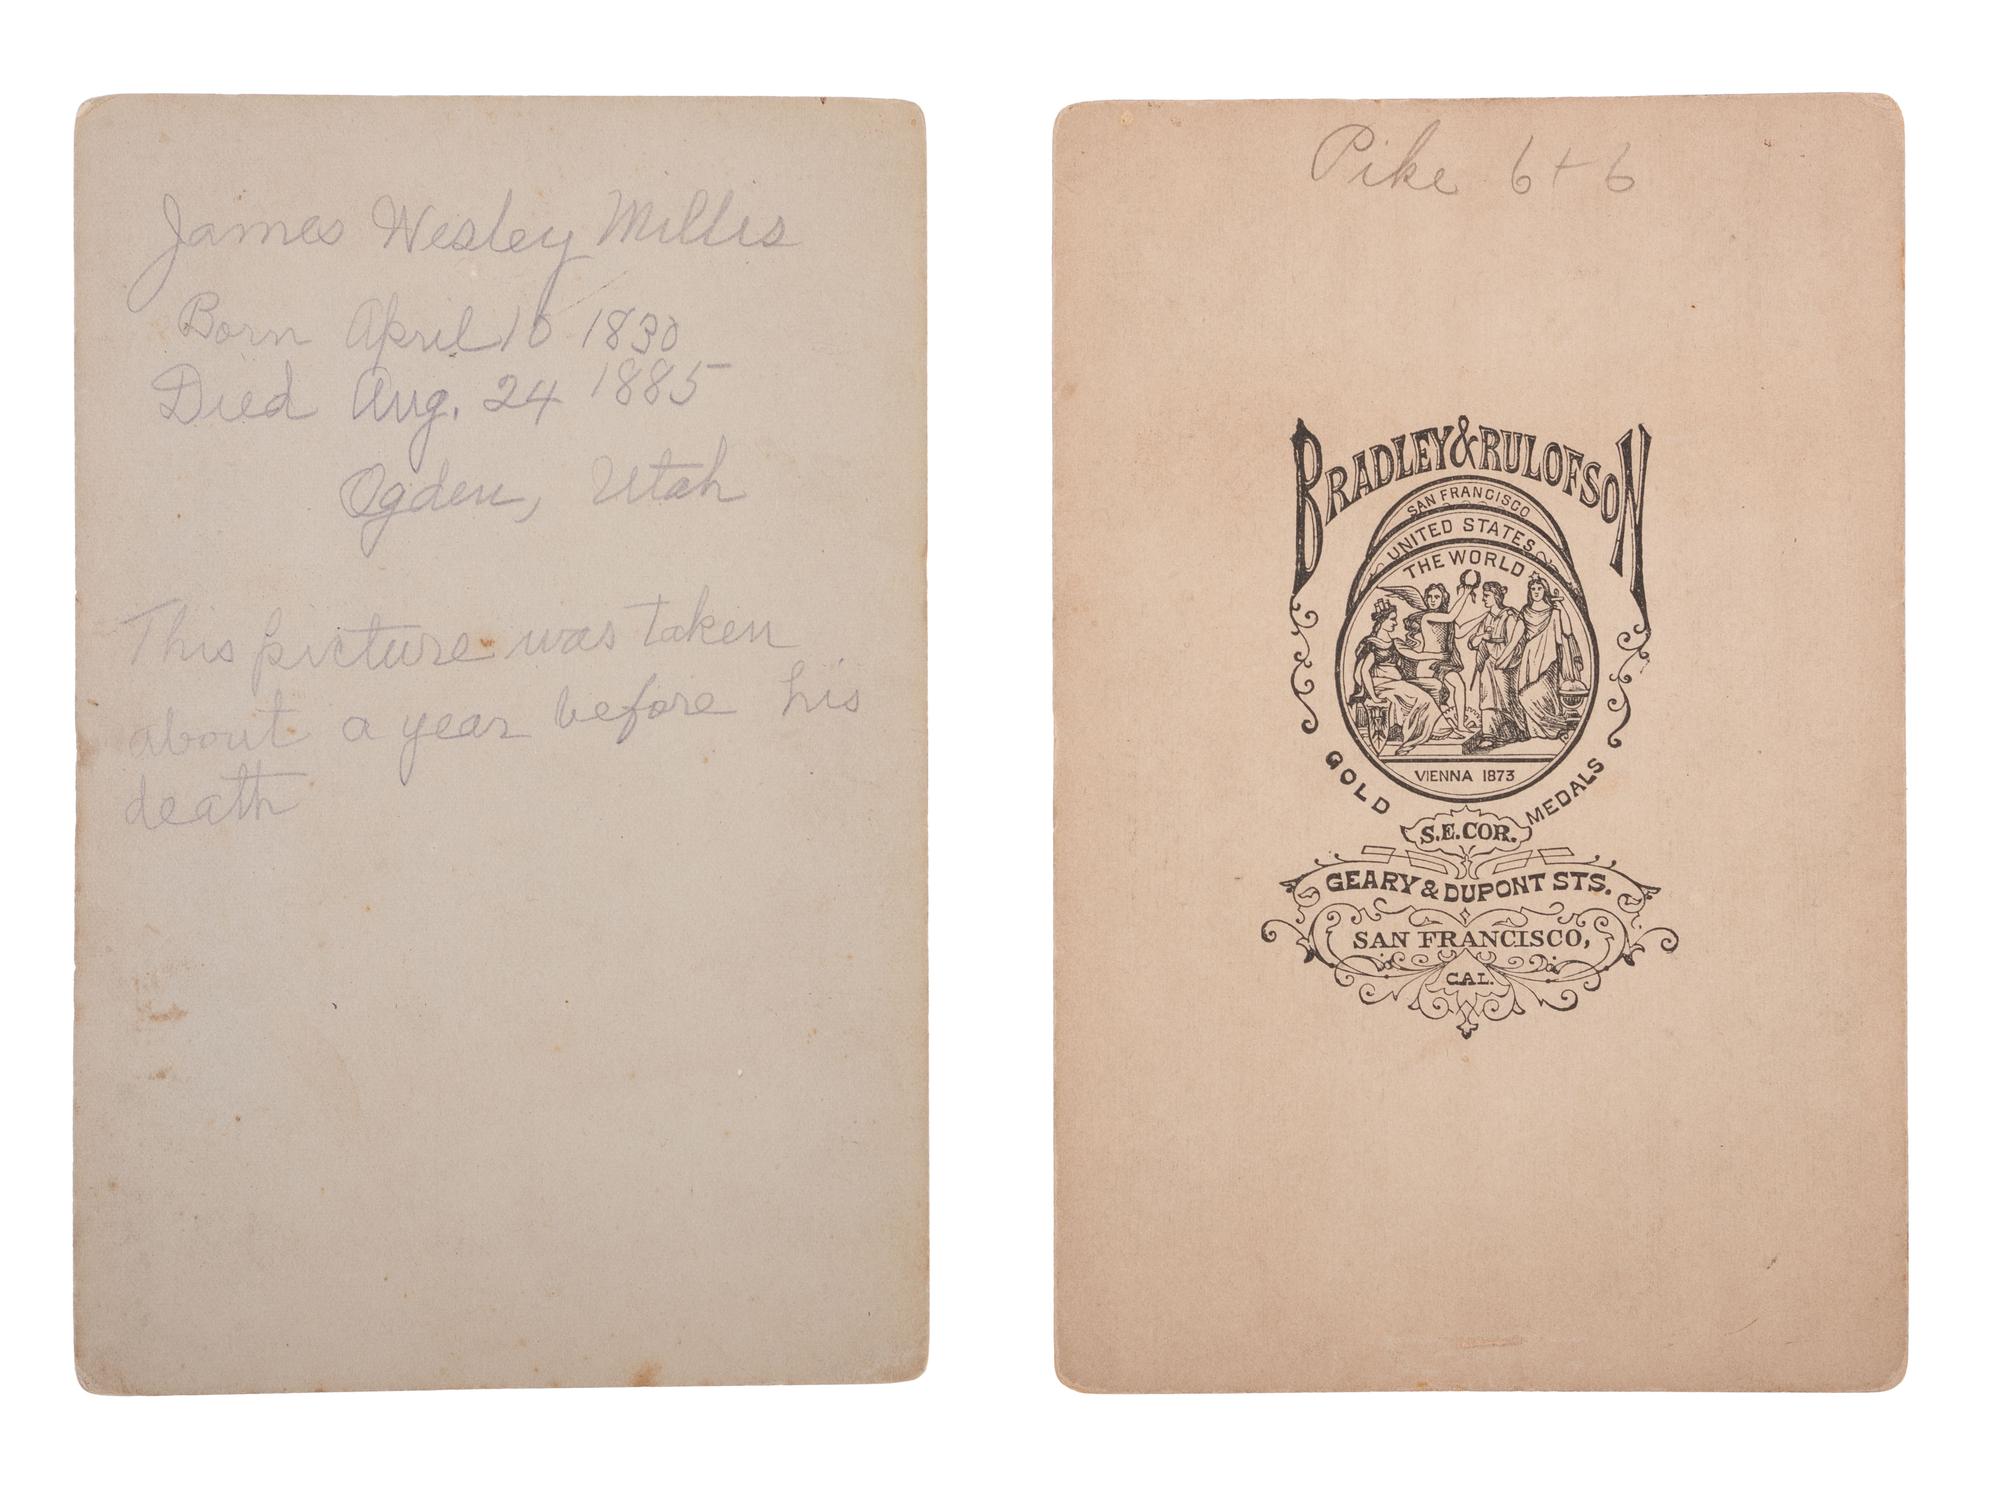 James Wesley Millis
Born April 10 1830
Died Aug. 24 1885
Ogden, Utah
This picture was taken
about a year before his
death
Pike 6+6
BRADLEY & RULOFSON
SAN FRANCISCO
UNITED STATES
THE WORLD
VIENNA 1873
GOLD MEDALS
S.E. COR.
GEARY & DUPONT STS.
SAN FRANCISCO,
CAL.